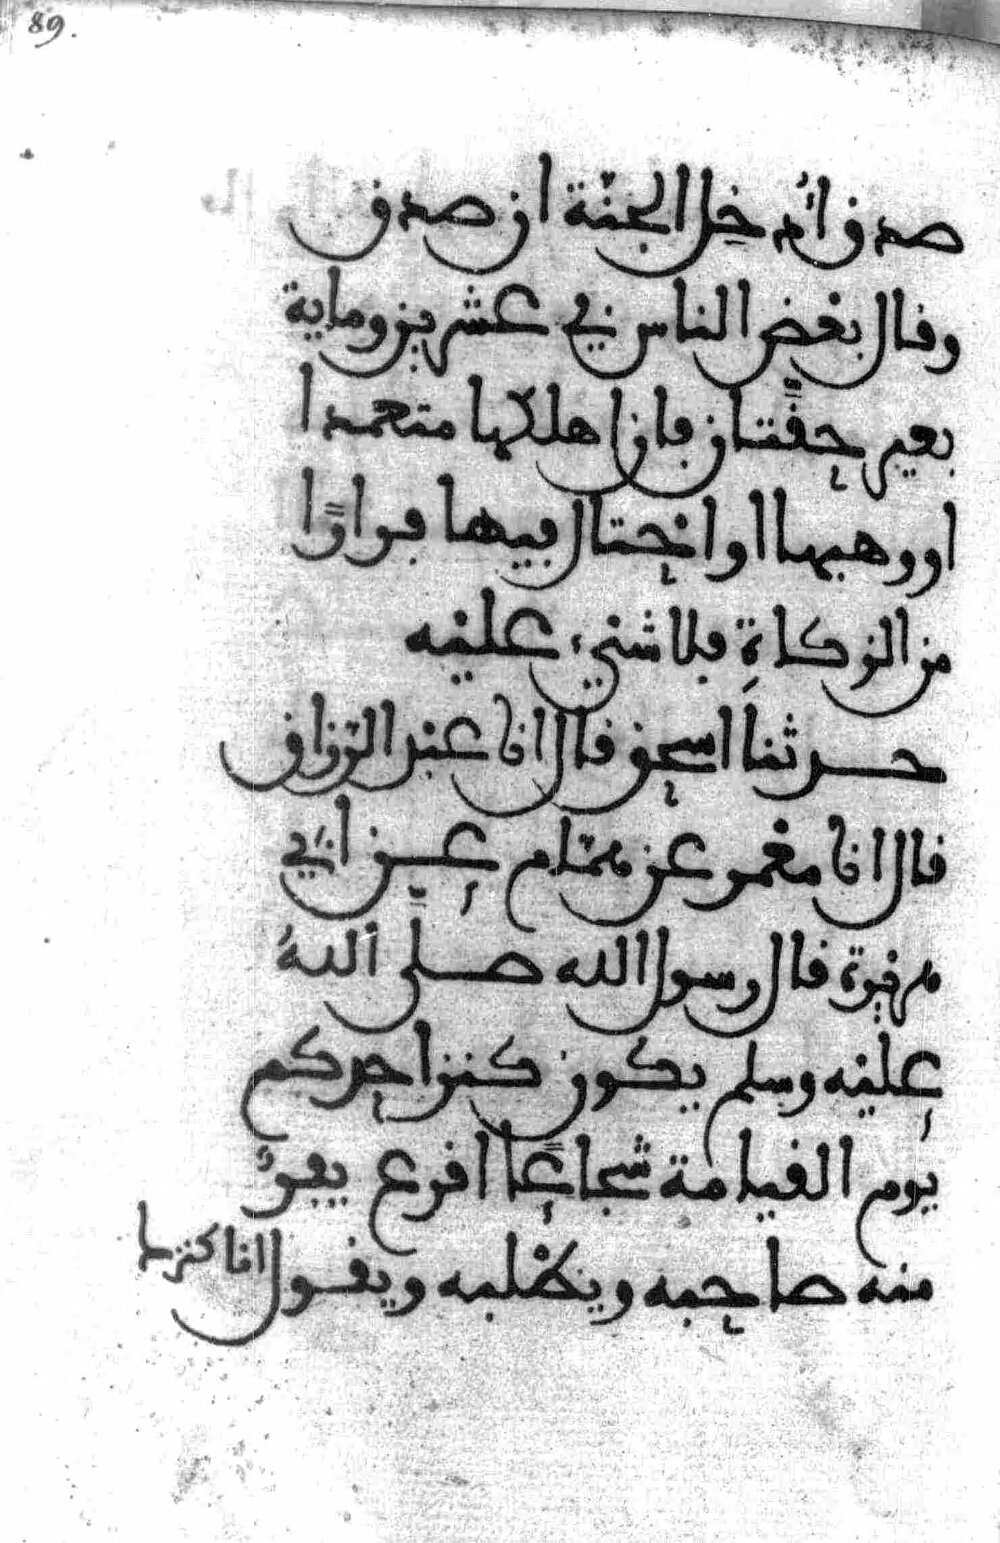 89.
صدق أدخل الجنة ان صدق
وقال بعض الناس في عشرين ومایة
بعير حقتان فان اهلكها متعمدا
او وهبها او احتال فيها فرارًا
من الزكاة فلا شيء عليه
حدثنا اسحق قال انا عبد الرزاق
قال انا معمر عن همّام عن ابي
هريرة قال رسول الله صلّى اللهُ
عليه وسلم يكون كنز احدكم
يوم القيامة شجاعًا اقرع يفرّ
منه صاحبه ويطلبه ويقول انا كنزك